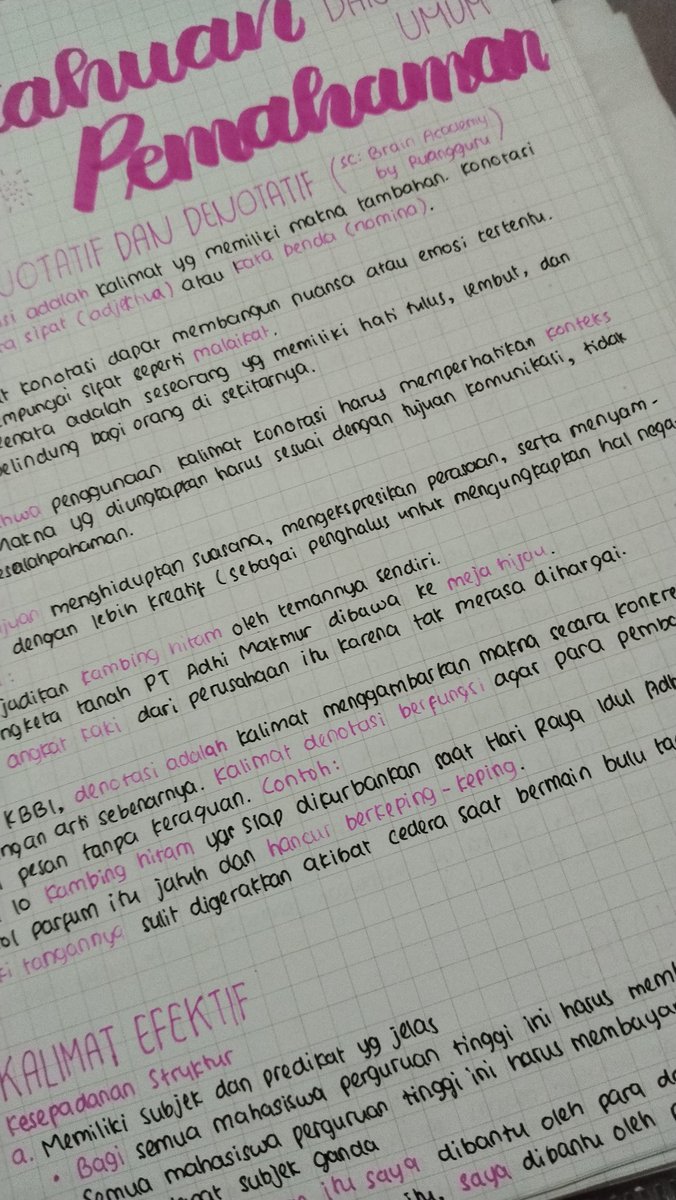 ahuan DAN
UMUM
Pemahaman
NOTATIF DAN DENOTATIF (sc: Brain Academy
by Ruangguru)
si adalah kalimat yg memiliki makna tambahan. Konotasi
ta sifat (adjektiva) atau kata benda (nomina).
t konotasi dapat membangun nuansa atau emosi tertentu.
mpunyai sifat seperti malaikat.
Renata adalah seseorang yg memiliki hati tulus, lembut, dan
pelindung bagi orang di sekitarnya.
hwa penggunaan kalimat konotasi harus memperhatikan konteks
Makna yg diungkapkan harus sesuai dengan tujuan komunikasi, tidak
esalahpahaman.
juan menghidupkan suasana, mengekspresikan perasaan, serta menyam-
dengan lebih kreatif (sebagai penghalus untuk mengungkapkan hal nega
:
jadikan kambing hitam oleh temannya sendiri.
ngketa tanah PT Adhi Makmur dibawa ke meja hijau.
angkat kaki dari perusahaan itu karena tak merasa dihargai.
KBBI, denotasi adalah kalimat menggambarkan makna secara konkre
ngan arti sebenarnya. Kalimat denotasi berfungsi agar para pemba
pesan tanpa keraguan. Contoh:
10 kambing hitam yg siap dikurbankan saat Hari Raya Idul Adh
ol parfum itu jatuh dan hancur berkeping-keping.
ki tangannya sulit digerakkan akibat cedera saat bermain bulu ta
KALIMAT EFEKTIF
Kesepadanan Struktur
a. Memiliki subjek dan predikat yg jelas
• Bagi semua mahasiswa perguruan tinggi ini harus memb
Semua mahasiswa perguruan tinggi ini harus membayar
subjek ganda
itu saya dibantu oleh para do
itu, saya dibantu oleh